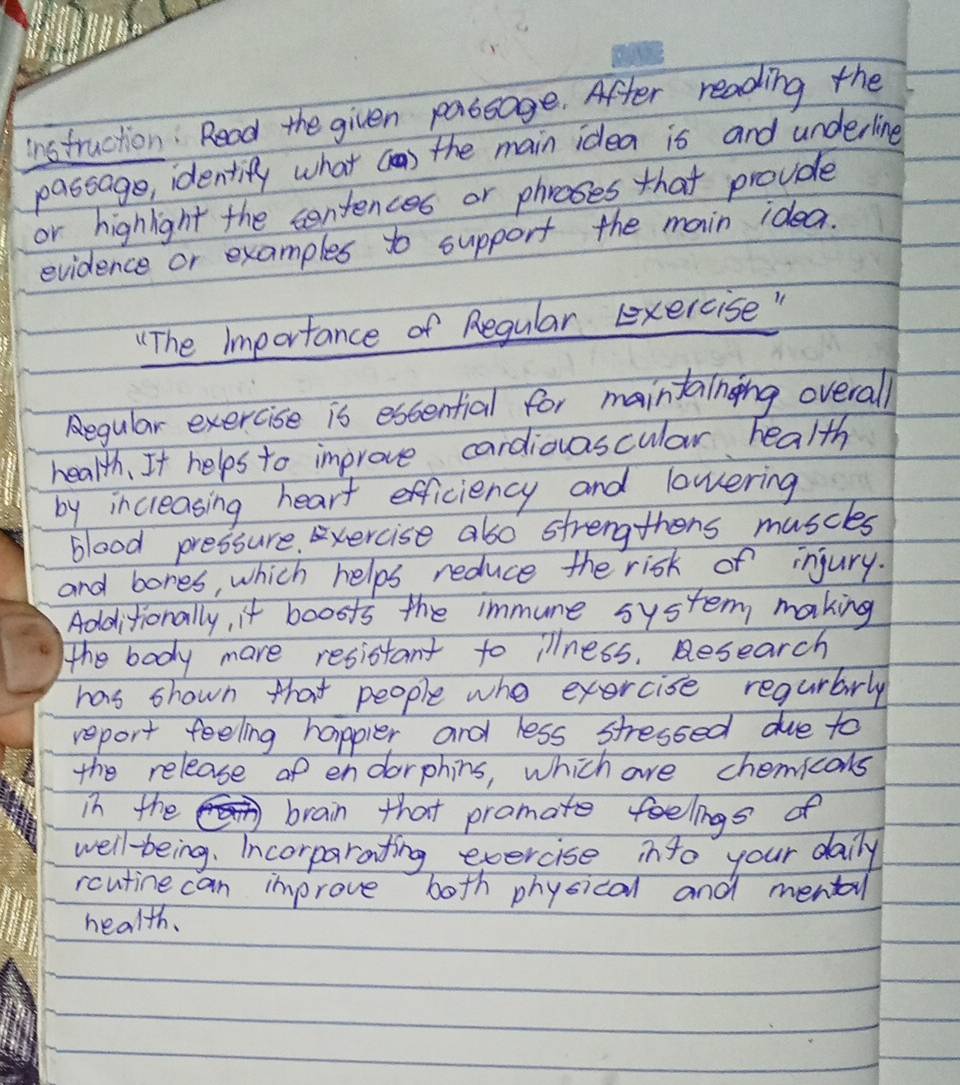 instruction: Read the given passage. After reading the
passage, identify what the main idea is and underline
or highlight the sentences or phrases that provide
evidence or examples to support the main idea.
"The Importance of Regular Exercise"
Regular exercise is essential for maintaining overall
health. It helps to improve cardiovascular health
by increasing heart efficiency and lowering
blood pressure. Exercise also strengthens muscles
and bones, which helps reduce the risk of injury.
Additionally, it boosts the immune system, making
the body more resistant to illness. Research
has shown that people who exercise regurlarly
report feeling happier and less stressed due to
the release of endorphins, which are chemicals
in the brain that promote feelings of
well-being. Incorporating exercise into your daily
routine can improve both physical and mental
health.